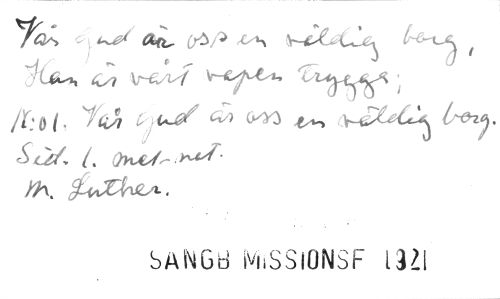 Vår Gud är oss en väldig borg,
Han är vårt vapen trygga;
N:o1. Vår Gud är oss en väldig borg.
Sid. 1. met-net.
M. Luther.
SANGB MISSIONSF 1921